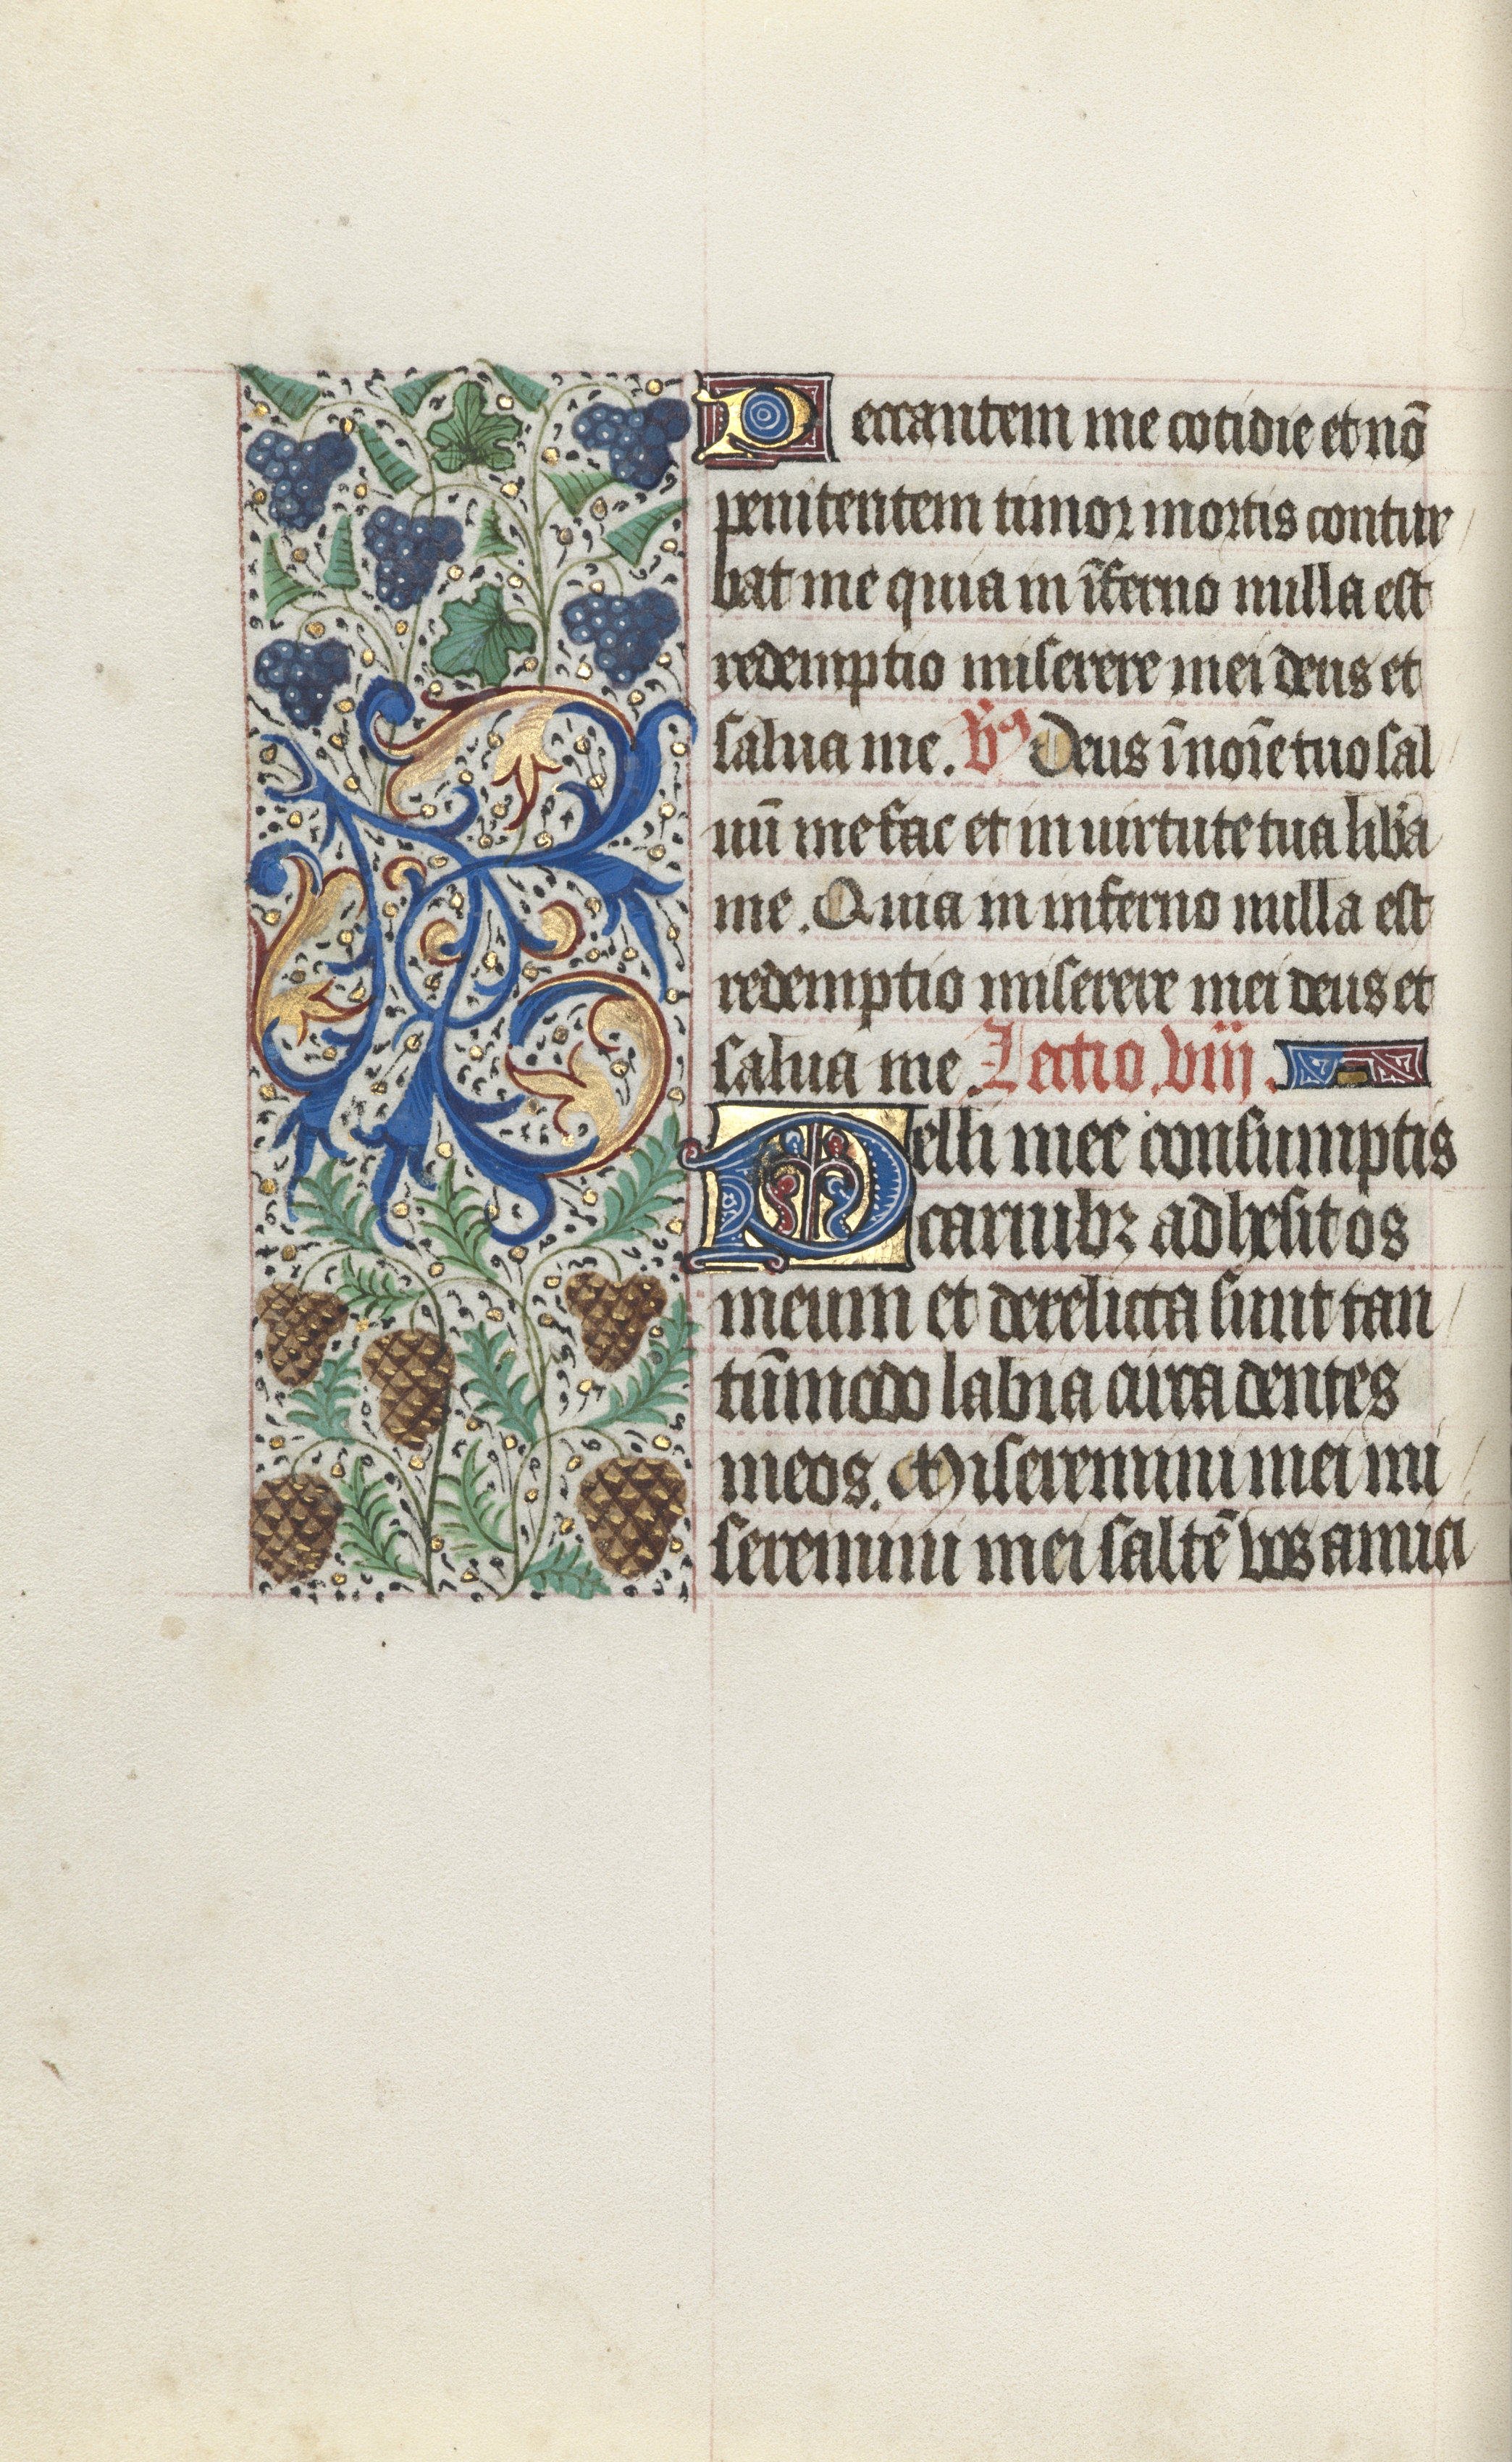 Peccantem me cotidie et nō
penitentem timor mortis contur
bat me quia in īferno nulla est
redemptio miserere mei deus et
salua me. v̄s Deus ī noīe tuo sal
uū me fac et in uirtute tua lib̄a
me. Quia in inferno nulla est
redemptio miserere mei deus et
salua me. Lectio .viij.
Pelli mee consumptis
carnibꝫ adhesit os
meum et derelicta sunt tan
tūmodo labia circa dentes
meos. Miseremini mei mi
seremini mei saltē vos amici